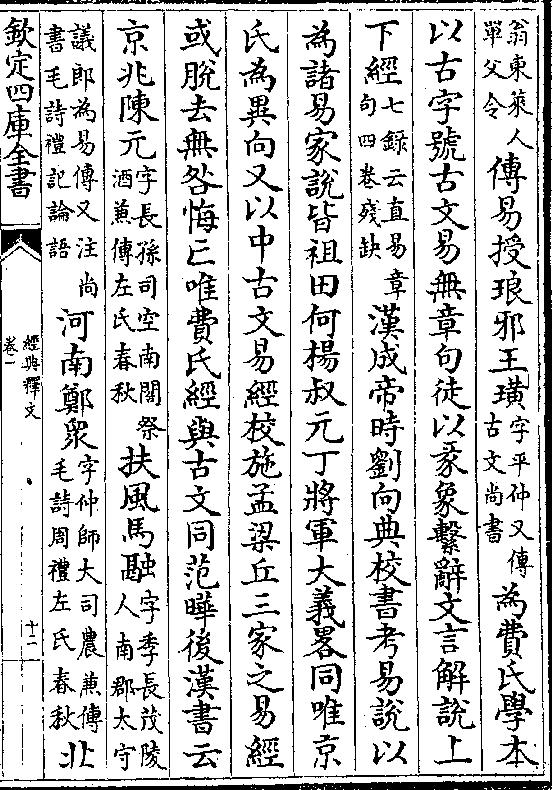 翁東萊人單父令傳易授琅邪王璜字平仲又傳古文尚書為費氏學本
以古字號古文易無章句徒以彖象繫辭文言解說上
下經七錄云直易章句四卷殘缺漢成帝時劉向典校書考易說以
為諸易家說皆祖田何楊叔元丁將軍大義畧同唯京
氏為異向又以中古文易經校施孟梁丘三家之易經
或脫去無咎悔亡唯費氏經與古文同范曄後漢書云
京兆陳元字長孫司空南閣祭酒兼傳左氏春秋扶風馬融字季長茂陵人南郡太守
議郎為易傳又注尚書毛詩禮記論語河南鄭眾字仲師大司農兼傳毛詩周禮左氏春秋北
欽定四庫全書
經典釋文
卷一
十二